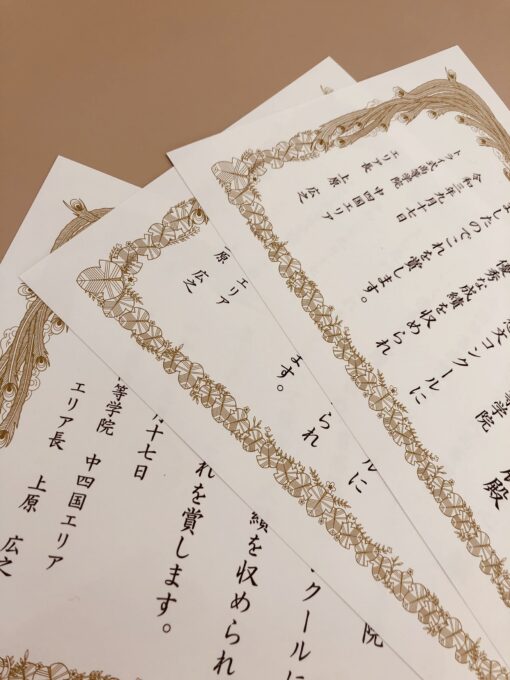 殿
学院
文コンクールに
優秀な成績を収められ
ましたのでこれを賞します。
令和三年九月十七日
トライ式高等学院 中四国エリア
エリア長 上原 広之
院
ルに
られ
ます。
エリア
原 広之
クールに
績を収められ
れを賞します。
月十七日
等学院 中四国エリア
エリア長 上原 広之